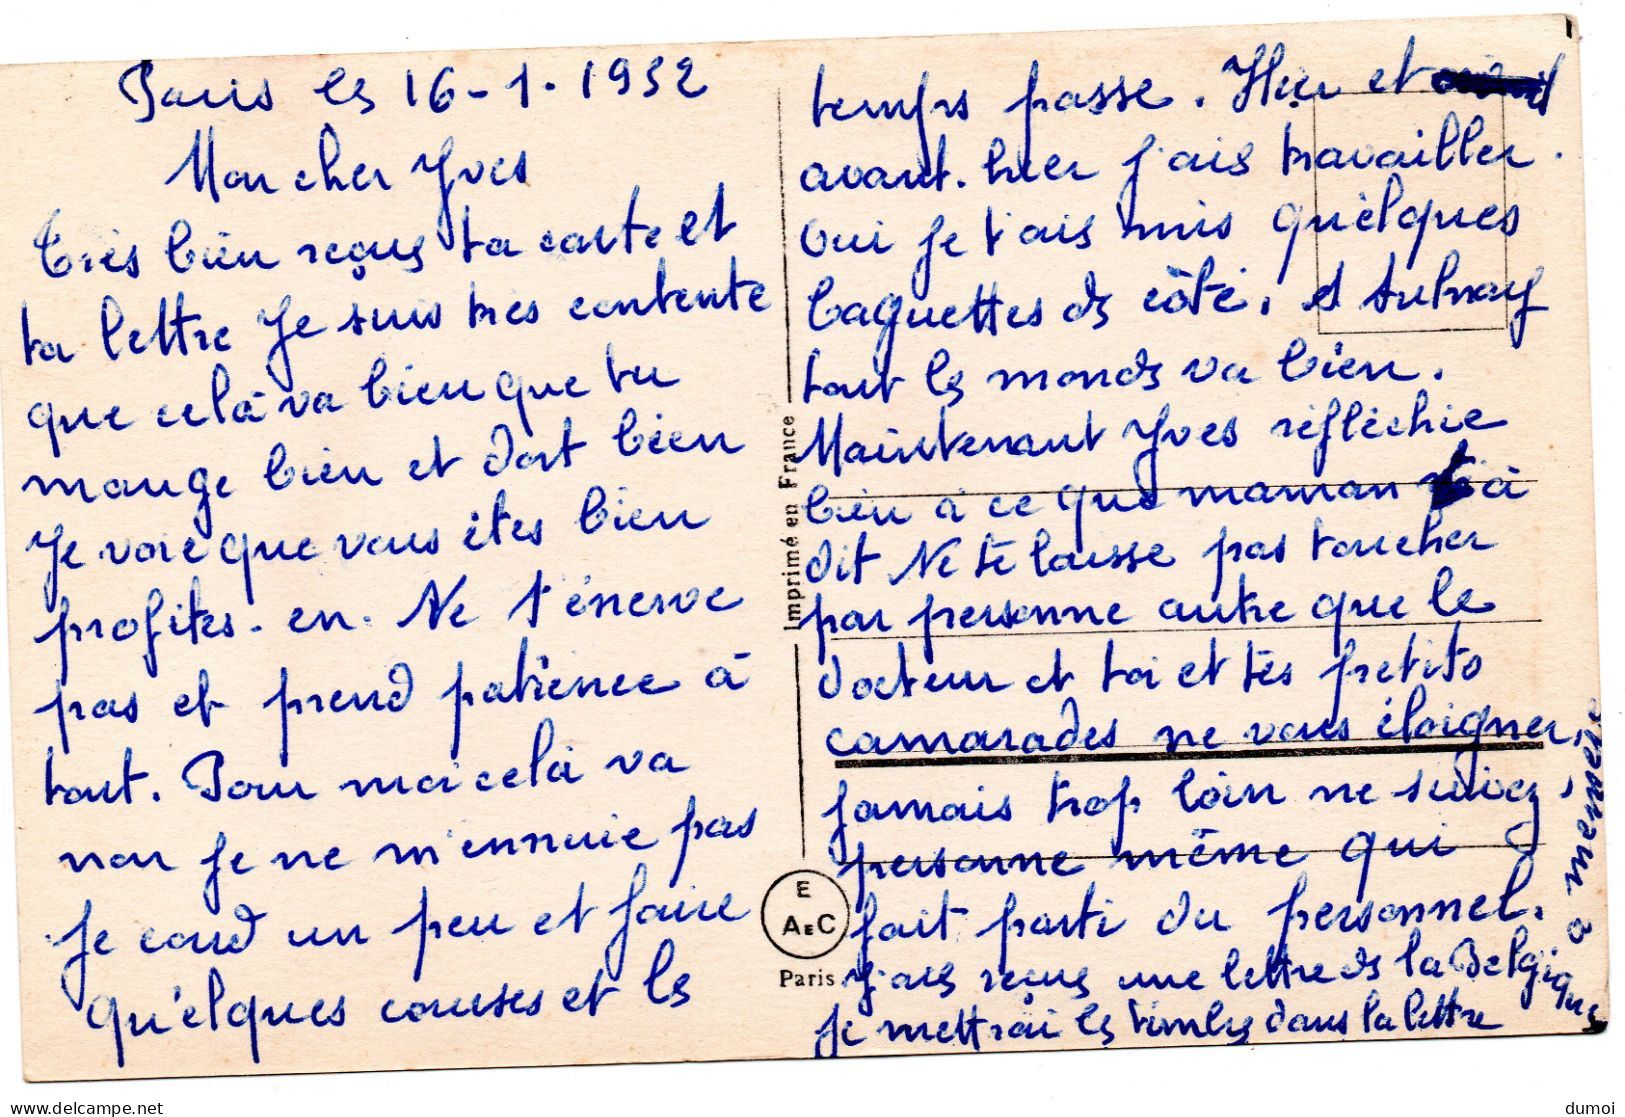 Paris les 16-1-1952
Mon cher Yves
Très bien reçus ta carte et
ta lettre Je suis très contente
que celà va bien que tu
mange bien et dort bien
Je voie que vous êtes bien
profites-en. Ne t'énerve
pas et prend patience à
tout. Pour moi celà va
non Je ne m'ennuie pas
Je coud un peu et faire
quélques courses et le
temps passe. Hier et
avant-hier j'ais travailler.
Oui je t'ais mis quélques
baguettes de côté. A Aulnay
tout le monde va bien.
Maintenant Yves réfléchie
bien à ce que maman à
dit Ne te laisse pas toucher
par personne autre que le
docteur et toi et tes petits
camarades ne vous éloigner,
jamais trop loin ne suivez,
personne même qui
fait parti du personnel.
j'ais reçus une lettre de la Belgique
Je mettrai les timbres dans la lettre
Imprimé en France
E
A E C
Paris
dumoi